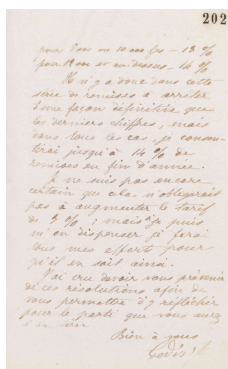 202
pour 5 ou 10 000 frs - 13 %
pour 15 000 et au dessus - 14 %
Il n'y a donc dans cette
série de remises à arrêter
d'une façon définitive que
les derniers chiffres, mais
dans tous les cas, je consen-
tirai jusqu'à 14 % de
remises en fin d'année.
Je ne suis pas encore
certain que cela n'obligerait
pas à augmenter le tarif
de 3 % ; mais si je puis
m'en dispenser je ferai
tous mes efforts pour
qu'il en soit ainsi.
J'ai cru devoir vous prévenir
de ces résolutions afin de
vous permettre d'y réfléchir
pour le parti que vous aurez
Bien à vous